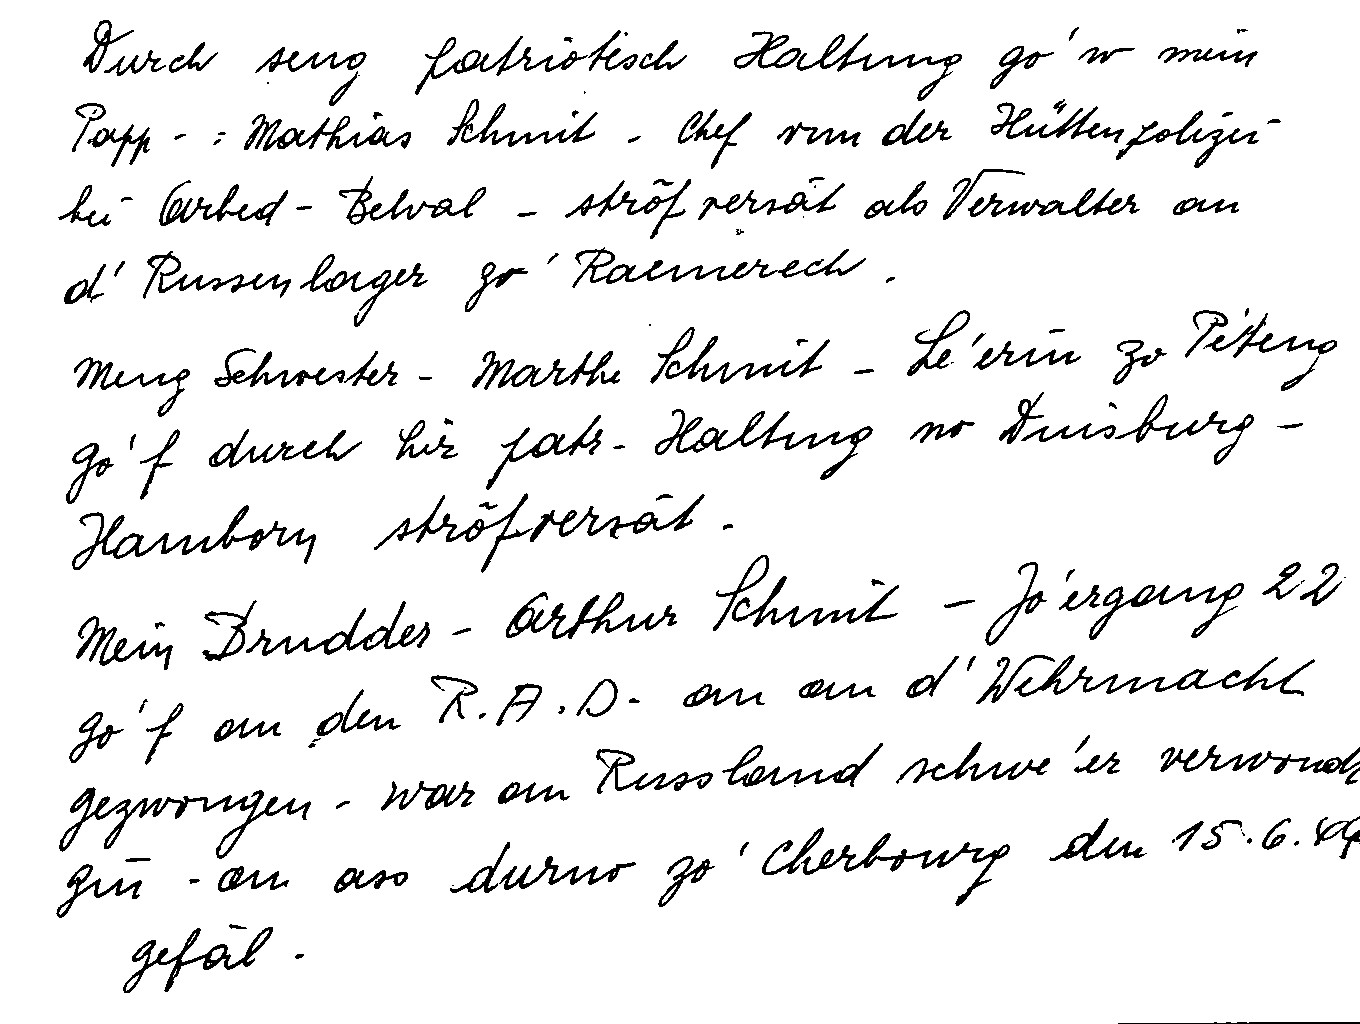 Durch seng patriotisch Haltung go'w mein
Papp - : Mathias Schmit - Chef vun der Hüttenpolizei
bei Arbed - Belval - ströfversät als Verwalter an
d' Russenlager zo' Raemerech.
Meng Schwester - Marthe Schmit - Le'erin zo Péteng
go'f durch hir patr. Haltung no Duisburg -
Hamborn ströfversät.
Mein Brudder - Arthur Schmit - Jo'ergang 22
go'f an den R.A.D. an an d'Wehrmacht
gezwongen - war an Russland schwe'er verwond
gin - an ass durno zo' Cherbourg den 15.6.44
gefäl.